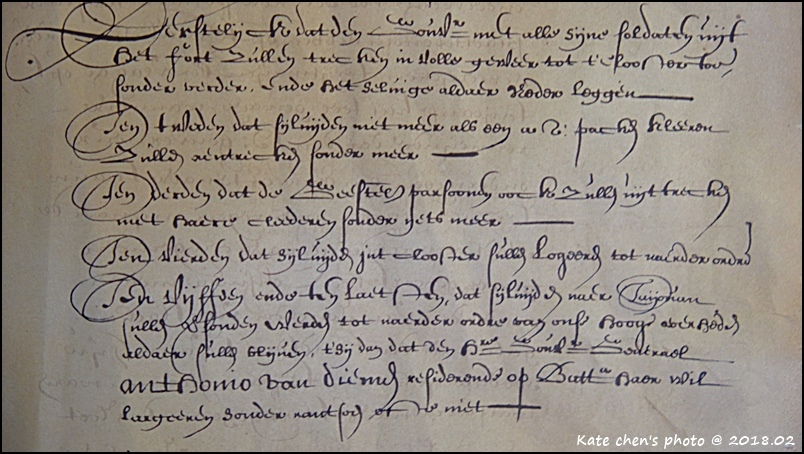 Eerstelijck dat den Gouvr met alle sijne soldaten uijt
het fort zullen trecken in volle geweer tot t' clooster toe,
sonder verder, ende het selvige aldaer neder leggen
Ten tweden dat sijluijden niet meer als een a 2: pack kleeren
zullen aentrecken sonder meer
Ten derden dat de Geestel parsoonen oock zullen uijttrecken
met haere clederen sonder yets meer
Ten vierden dat sijluijden int clooster sullen logeeren tot naerder ordre
Ten vijffden ende ten laetsten, dat sijluijden naer Taijouan
sullen gesonden werden tot naerder ordre van ons hooge overheden
aldaer sullen blijven, t'sij dan dat den Hr Gouvr Generael
anthonio van diemen residerende op Batta haer wil
largeeren sonder rantson of te niet
Kate chen's photo @ 2018.02